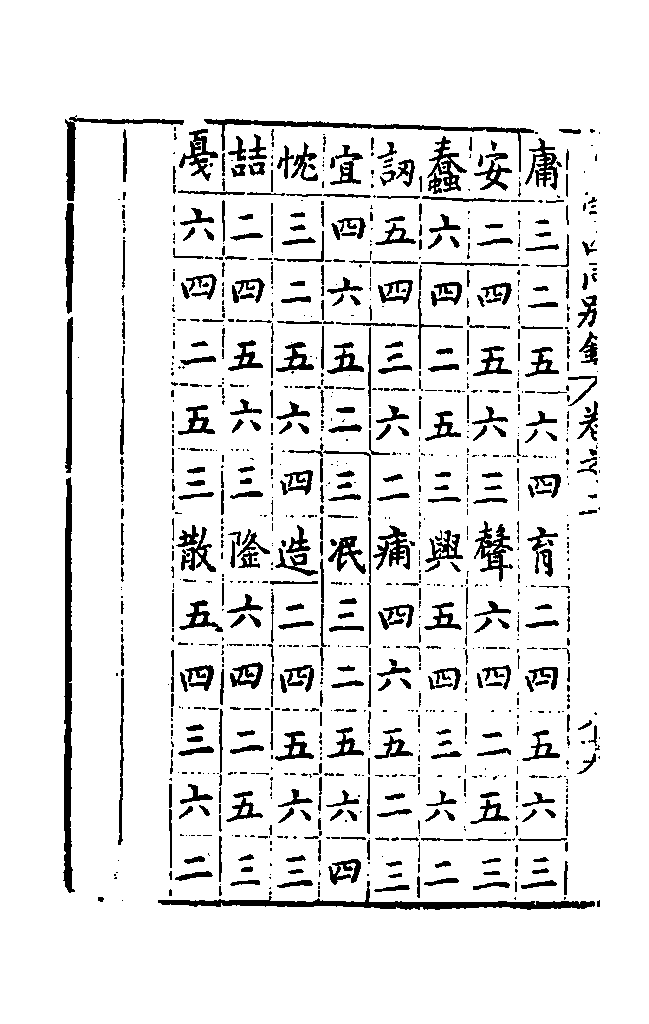 庸三二五六四育二四五六三
安二四五六三聲六四二五三
蠢六四二五三興五四三六二
訒五四三六二痡四六五二三
宜四六五二三泯三二五六四
忱三二五六四造二四五六三
喆二四五六三隆六四二五三
戛六四二五三散五四三六二